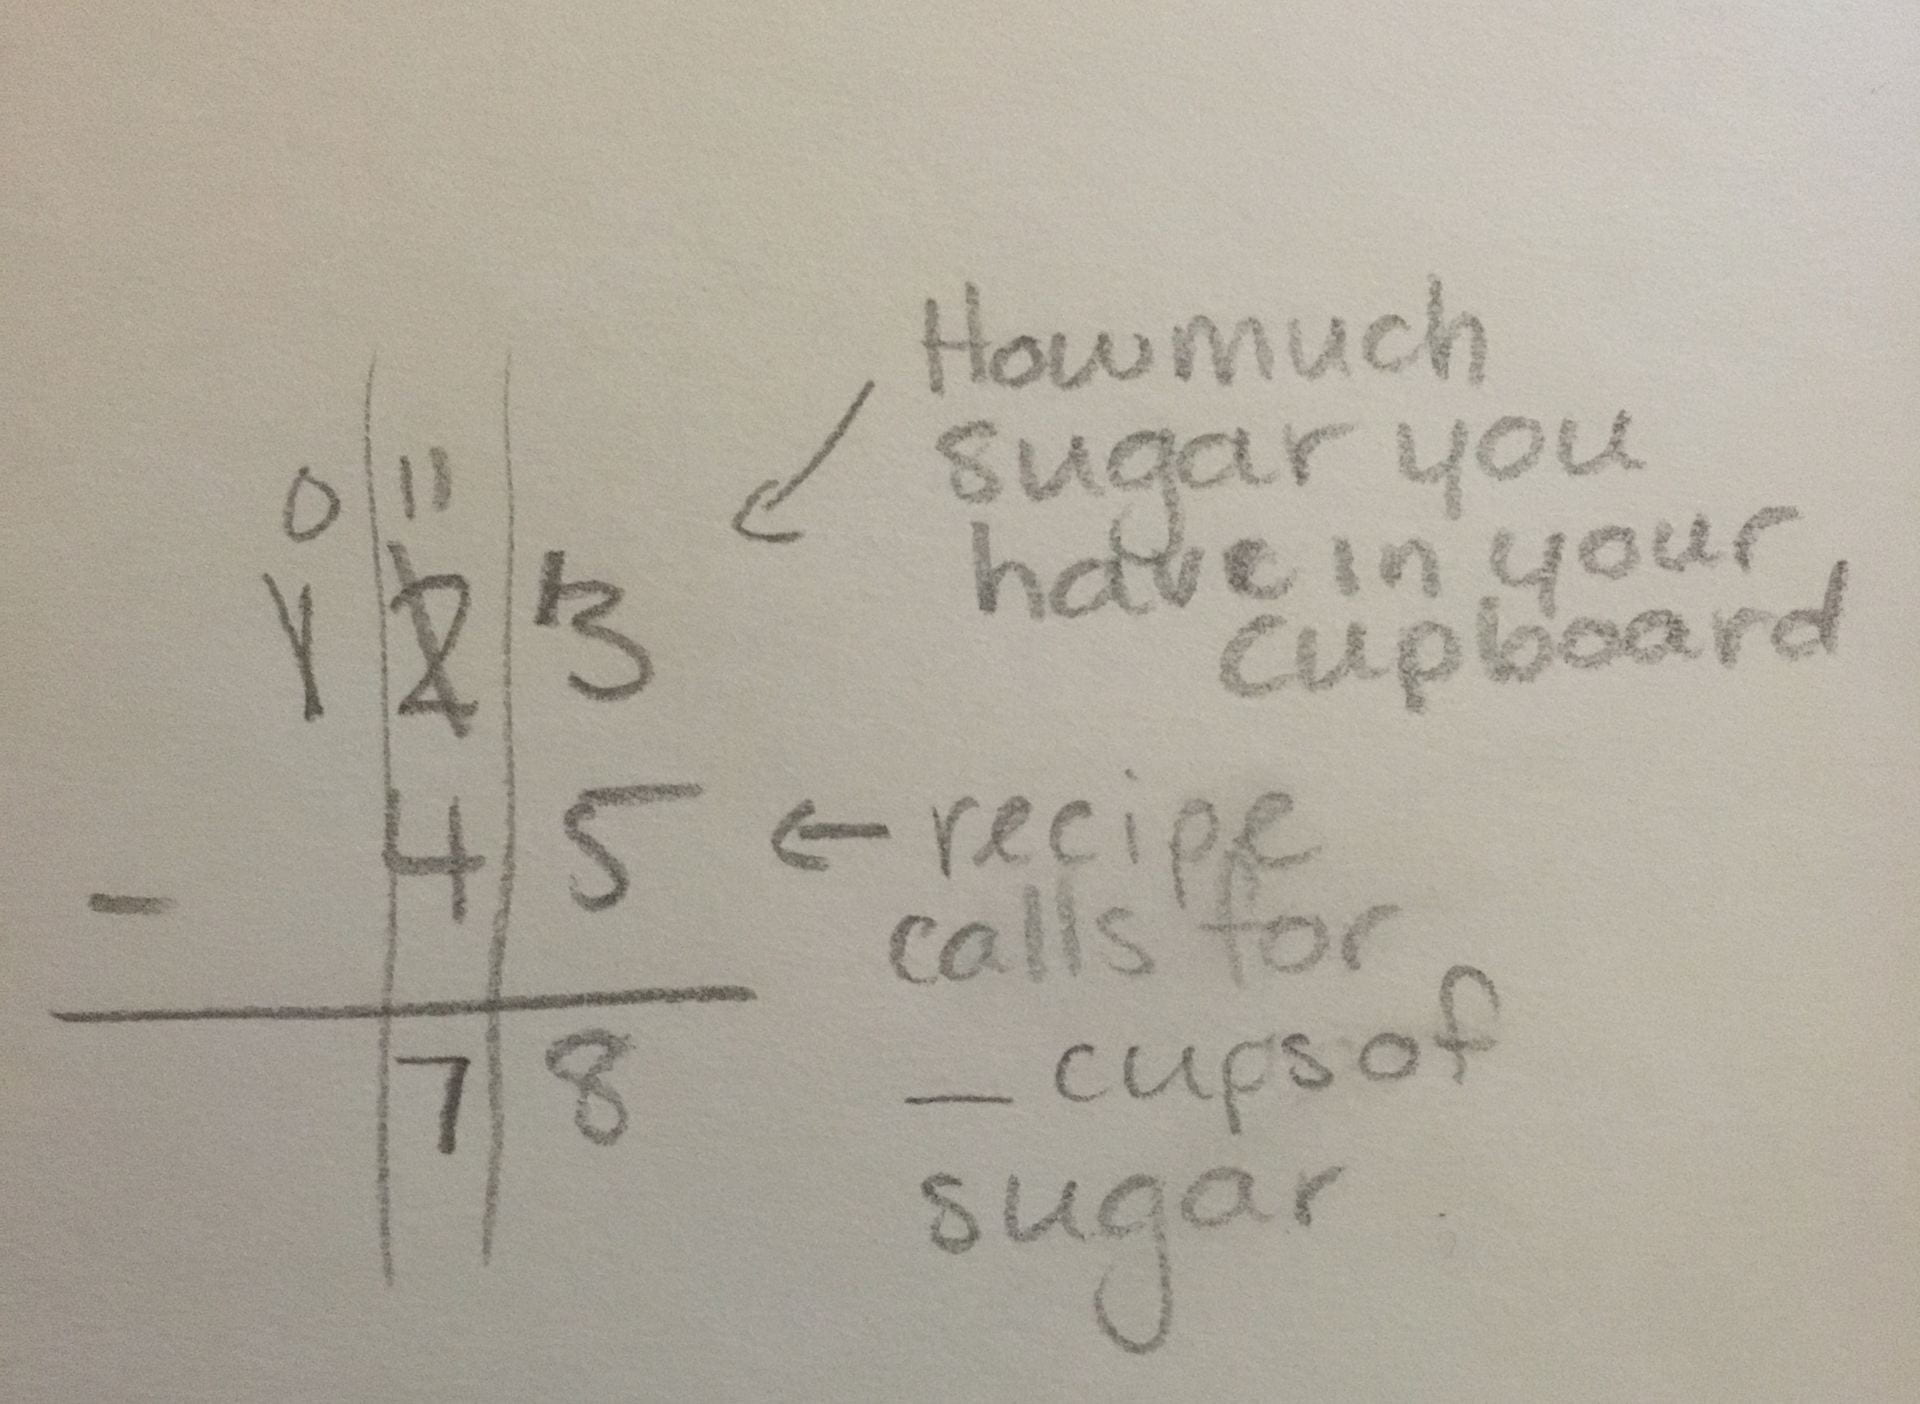 How much
sugar you
have in your
cupboard
0 11
1 2 13
- 4 5
7 8
← recipe
calls for
_ cups of
sugar